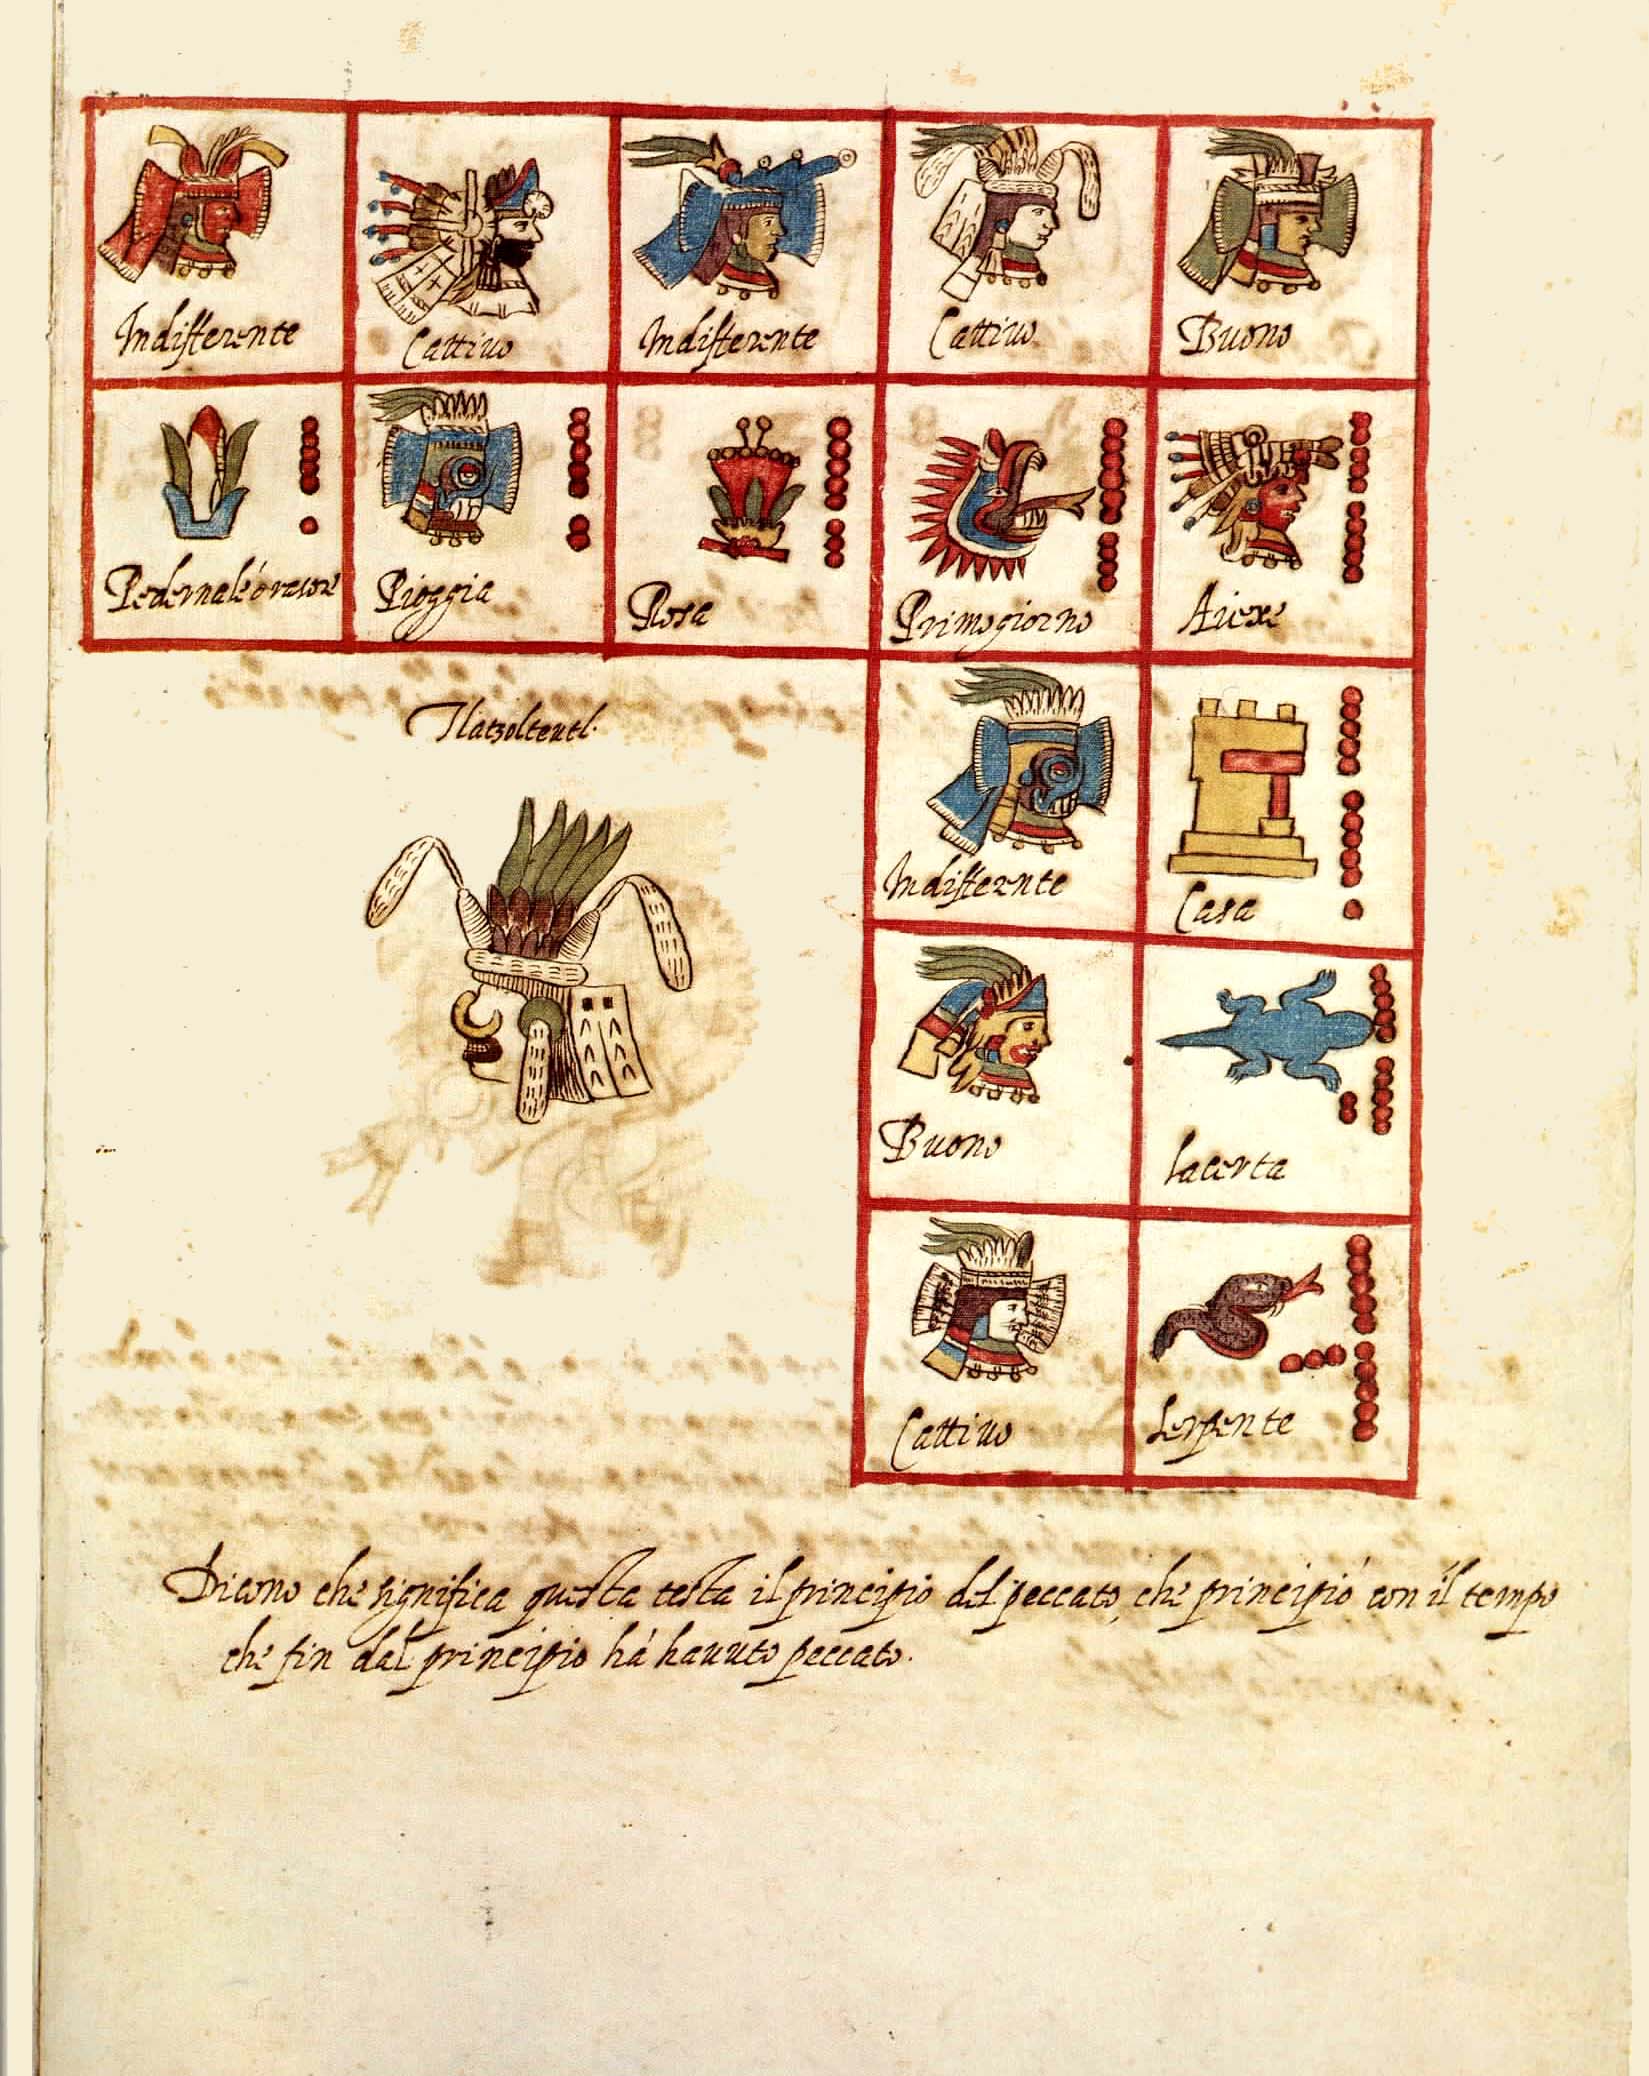 Indifferente
Cattiuo
Indifferente
Cattiuo
Buono
Pedernale ó rasore
Pioggia
Rosa
Primo giorno
Aiere
Tlatzolteutl.
Indifferente
Casa
Buono
Lacerta
Cattiuo
Serpente
Dicono che significa questa testa il principio del peccato, che principió con il tempo
che fin dal principio há hauuto peccato.